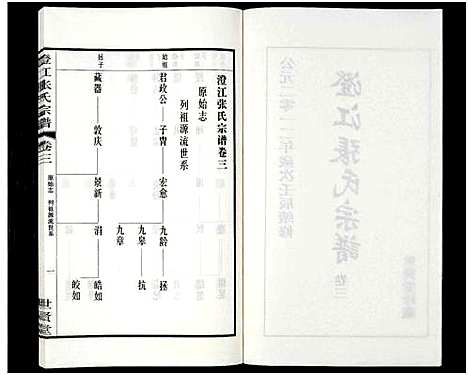 公元二零一一年歲次壬辰續修
澄江張氏宗譜
卷三
澄江张氏宗谱卷三
原始志
列祖源流世系
始祖
君政公 子胄 宏愈 九龄 拯
九皋 抗
九章
长子
藏器 敦庆 景新 涓 皓如
皎如
澄江张氏宗谱
卷三
原始志 列祖源流世系
一
世贤堂